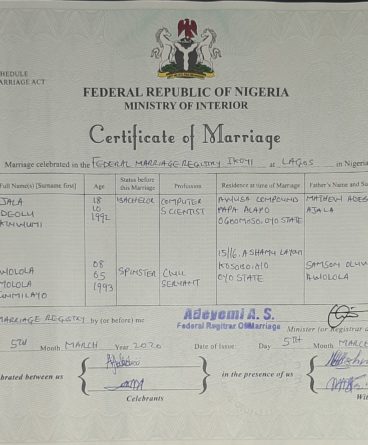 SCHEDULE
MARRIAGE ACT
FEDERAL REPUBLIC OF NIGERIA
MINISTRY OF INTERIOR
Certificate of Marriage
Marriage celebrated in the FEDERAL MARRIAGE REGISTRY IKOYI at LAGOS in Nigeria
Full Name(s) [Surname first] Age Status before this Marriage Profession Residence at time of Marriage Father's Name and Su
AJALA 18 BACHELOR COMPUTER AWUSA COMPOUND MATHEW ADEG
ADEOLU 10 SCIENTIST PAPA ALAPO AJALA
AKINWUMI 1992 OGBOMOSO, OYO STATE
15/16, ASHAMU LAYOUT
AWOLOLA 08 SPINSTER CIVIL KOSOBO, OYO SAMSON OLUW
05 SERVANT OYO STATE AWOLOLA
1993
MARRIAGE REGISTRY by (or before) me Adeyemi A. S.
Federal Regitrar Of Marriage Minister (or Registrar
5TH Month MARCH Year 2020 Date of Issue: Day 5TH Month MARCH
ebrated between us in the presence of us
Celebrants Wit